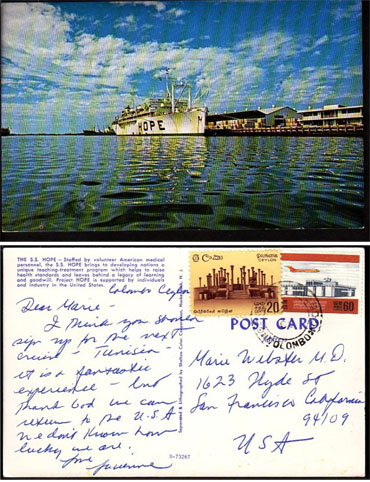 HOPE
THE S.S. HOPE — Staffed by volunteer American medical
personnel, the S.S. HOPE brings to developing nations a
unique teaching-treatment program which helps to raise
health standards and leaves behind a legacy of learning
and goodwill. Project HOPE is supported by individuals
and industry in the United States.
Colombo Ceylon
Dear Marie
I think you should
sign up for the next
cruise - Tunisia -
it is a fantastic
experience - and
thank God we can
return to the U.S.A
We don't know how
lucky we are.
CEYLON
20
60
POST CARD
COLOMBO
Marie Webster M.D.
1623 Hyde St
San Francisco California
94109
USA